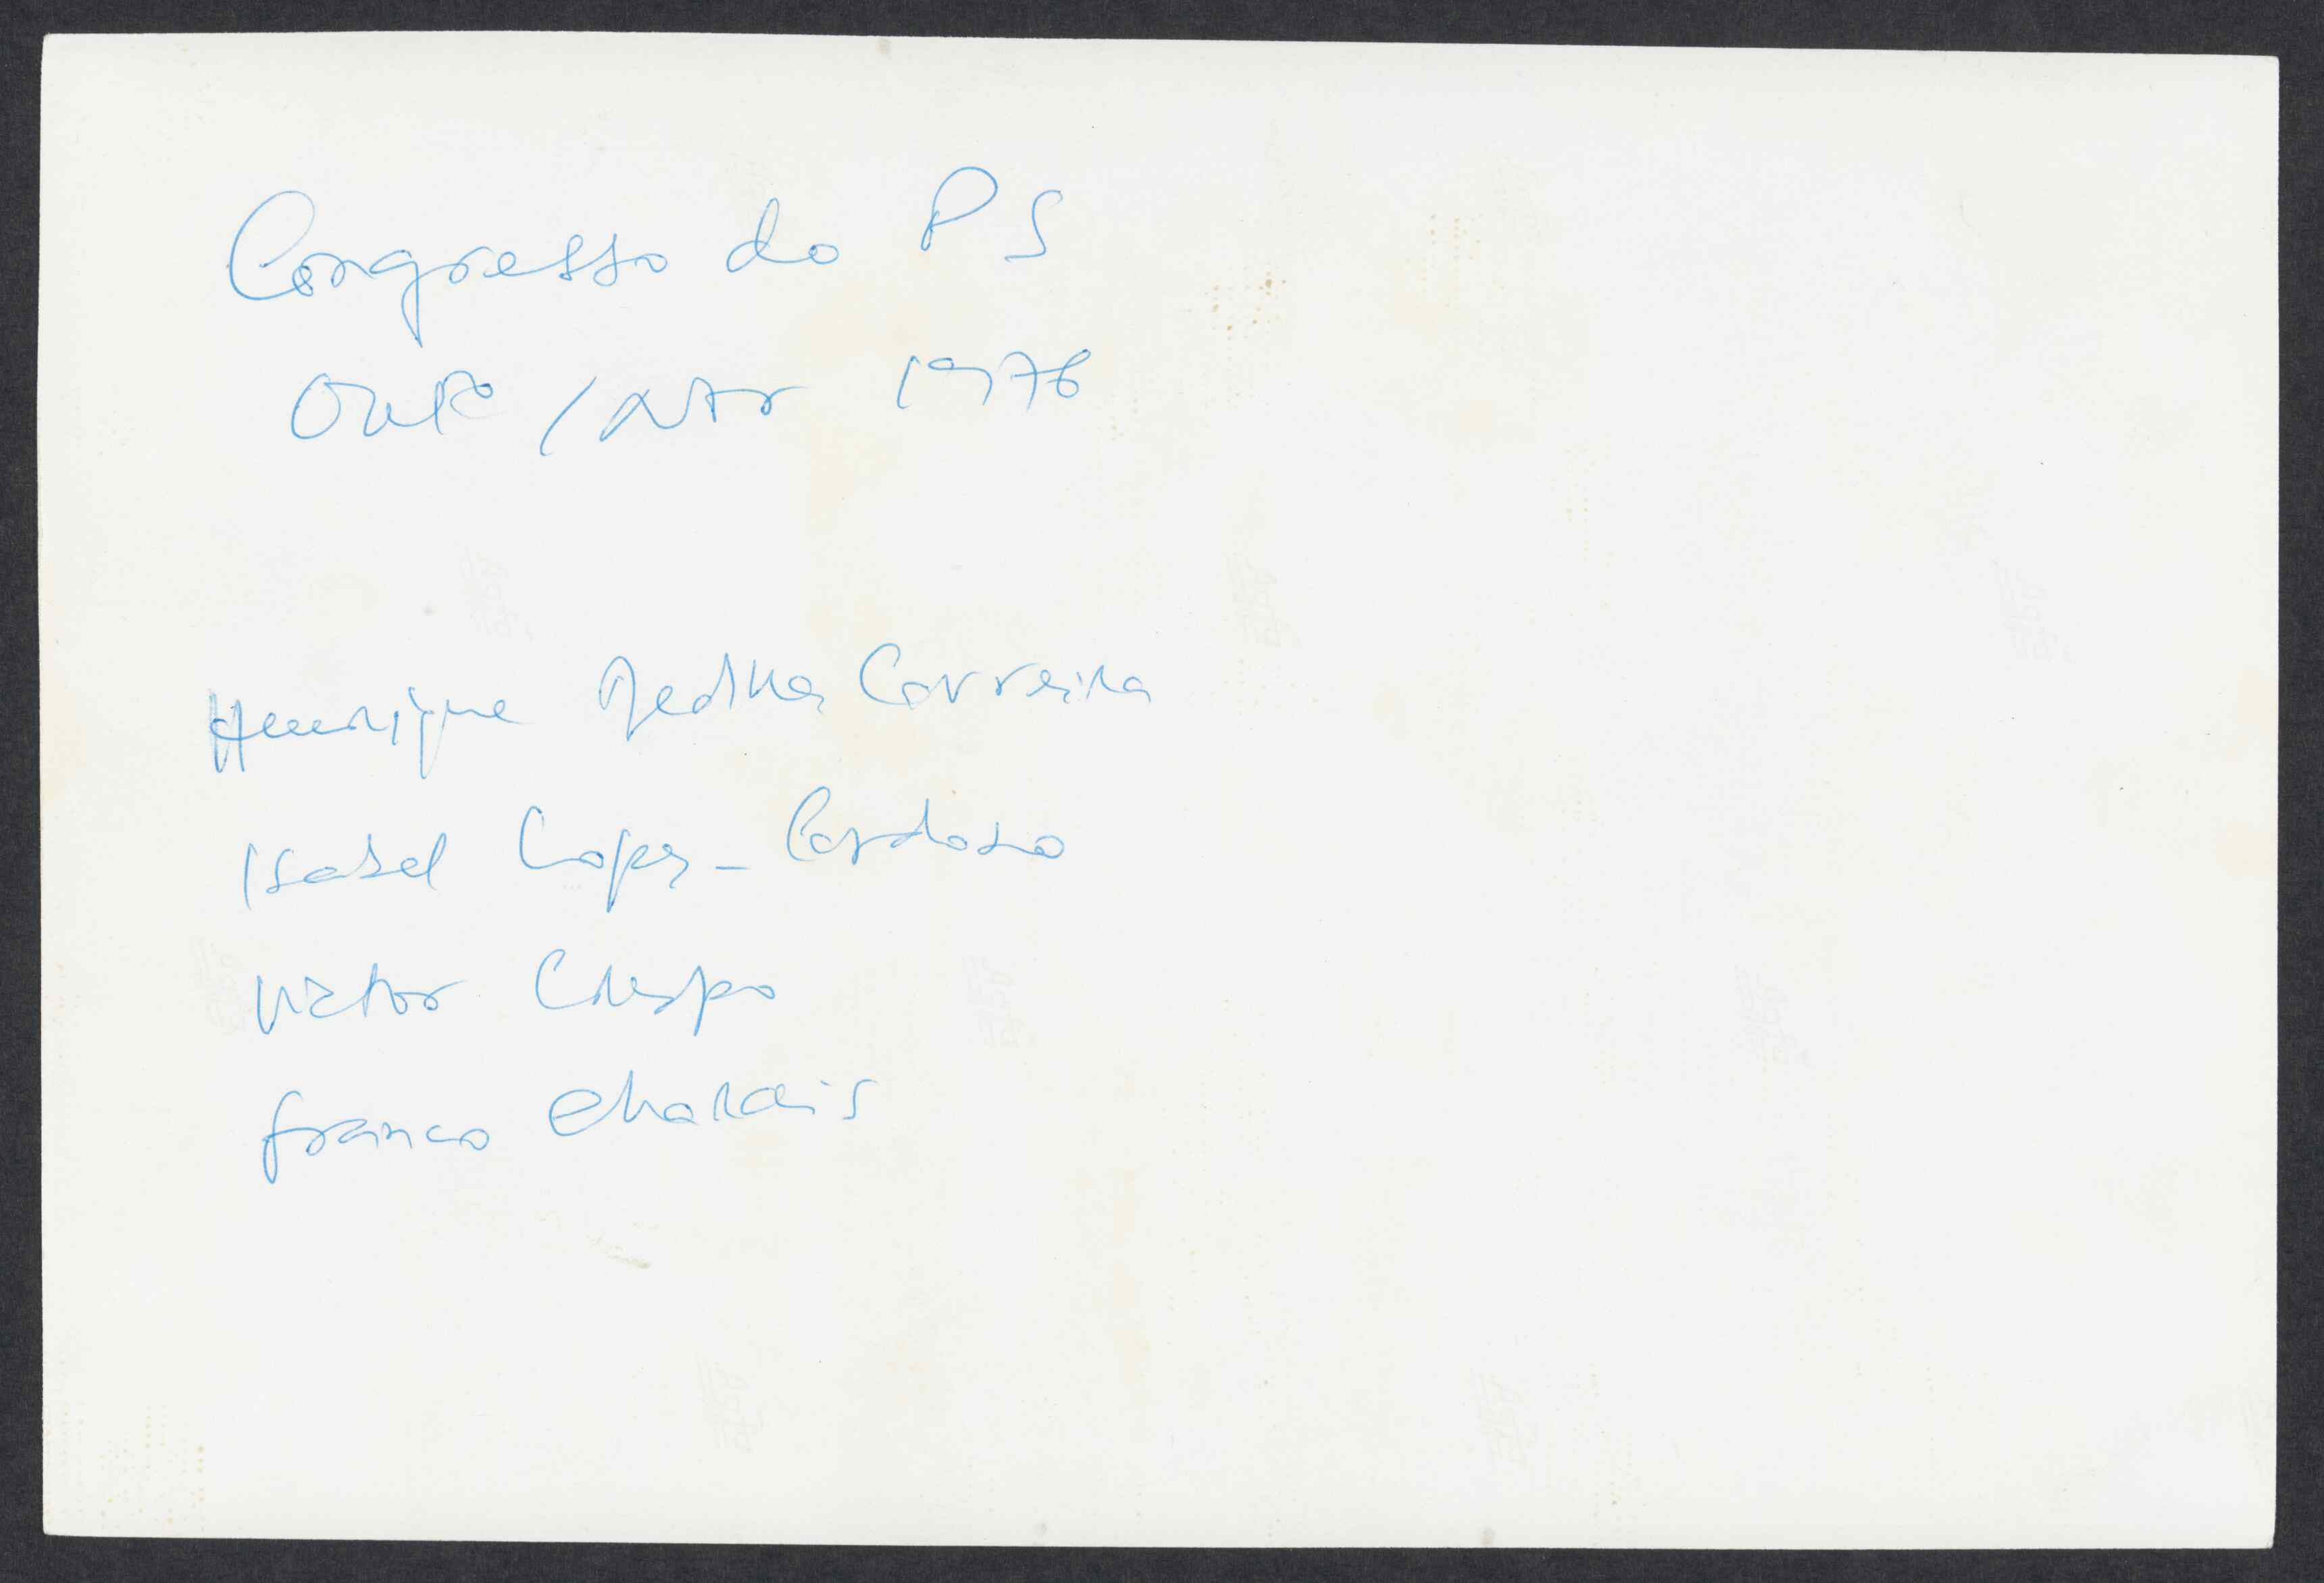 Congresso do PS
Outº / Nov 1976
Henrique Medina Carreira
Isabel Lopes - Cardoso
Victor Crespo
Franco Charais